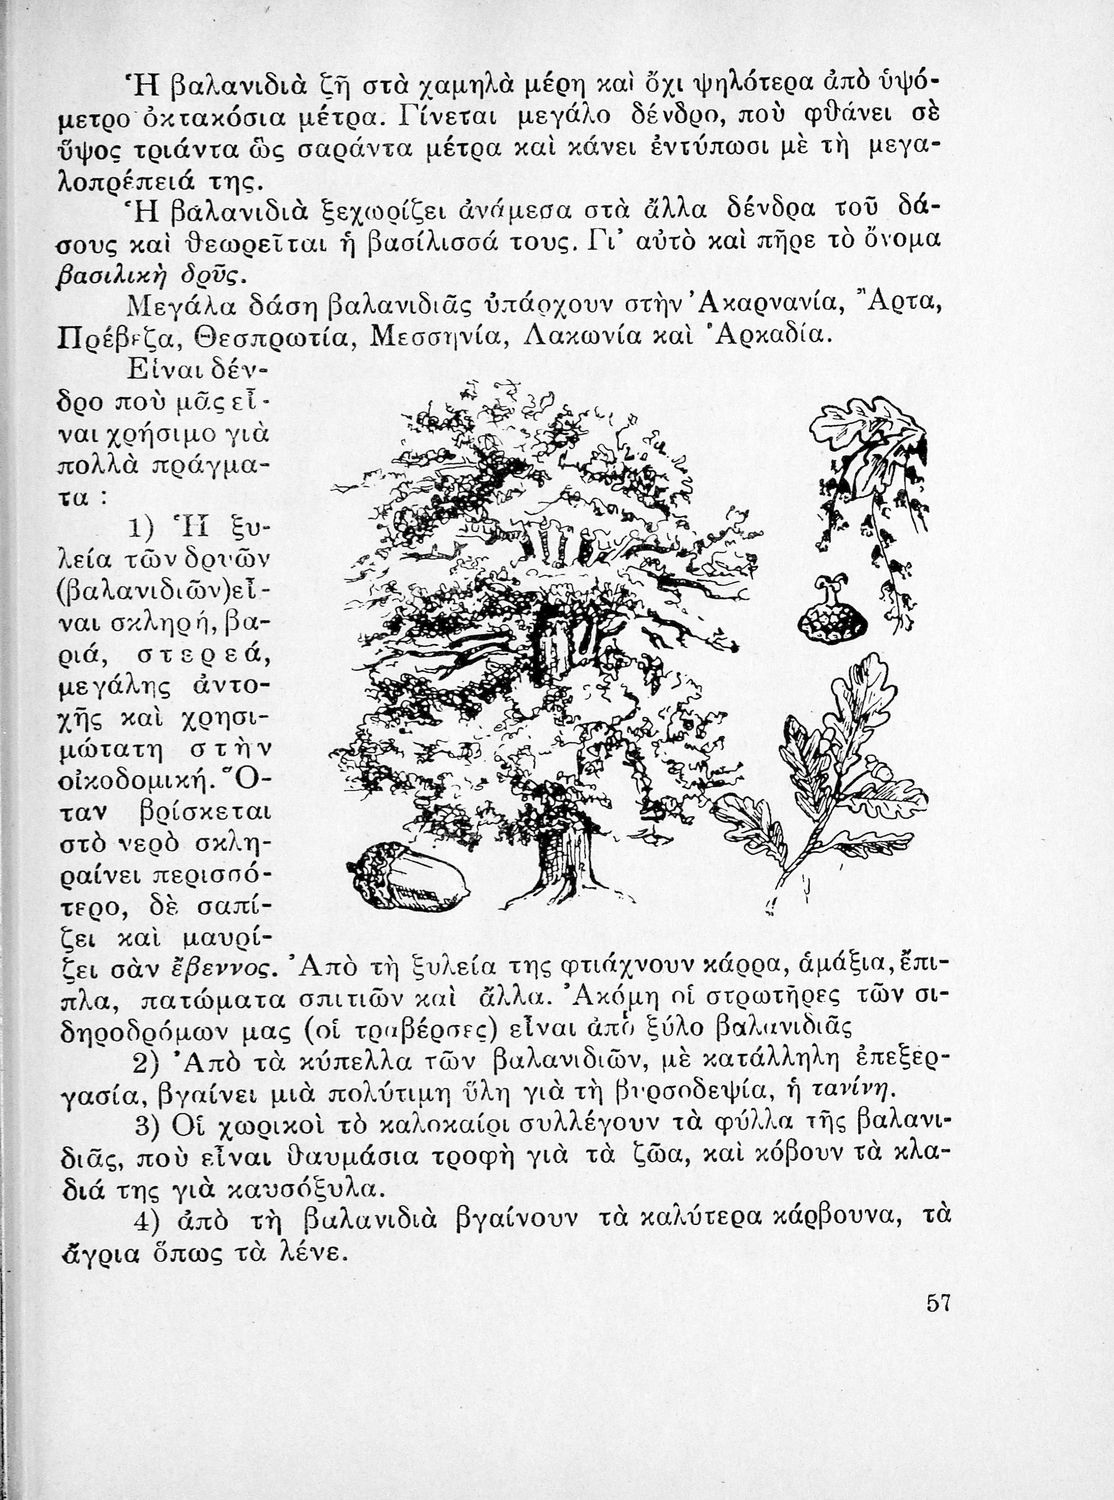 Ἡ βαλανιδιὰ ζῆ στὰ χαμηλὰ μέρη καὶ ὄχι ψηλότερα ἀπὸ ὑψό-
μετρο ὀκτακόσια μέτρα. Γίνεται μεγάλο δένδρο, ποὺ φθάνει σὲ
ὕψος τριάντα ὣς σαράντα μέτρα καὶ κάνει ἐντύπωσι μὲ τὴ μεγα-
λοπρέπειά της.
Ἡ βαλανιδιὰ ξεχωρίζει ἀνάμεσα στὰ ἄλλα δένδρα τοῦ δά-
σους καὶ θεωρεῖται ἡ βασίλισσά τους. Γι’ αὐτὸ καὶ πῆρε τὸ ὄνομα
βασιλικὴ δρῦς.
Μεγάλα δάση βαλανιδιᾶς ὑπάρχουν στὴν Ἀκαρνανία, Ἄρτα,
Πρέβεζα, Θεσπρωτία, Μεσσηνία, Λακωνία καὶ Ἀρκαδία.
Εἶναι δέν-
δρο ποὺ μᾶς εἶ-
ναι χρήσιμο γιὰ
πολλὰ πράγμα-
τα :
1) Ἡ ξυ-
λεία τῶν δρυῶν
(βαλανιδιῶν) εἶ-
ναι σκληρή, βα-
ριά, στερεά,
μεγάλης ἀντο-
χῆς καὶ χρησι-
μώτατη στὴν
οἰκοδομική. Ὅ-
ταν βρίσκεται
στὸ νερὸ σκλη-
ραίνει περισσό-
τερο, δὲ σαπί-
ζει καὶ μαυρί-
ζει σὰν ἔβεννος. Ἀπὸ τὴ ξυλεία της φτιάχνουν κάρρα, ἁμάξια, ἔπι-
πλα, πατώματα σπιτιῶν καὶ ἄλλα. Ἀκόμη οἱ στρωτῆρες τῶν σι-
δηροδρόμων μας (οἱ τραβέρσες) εἶναι ἀπὸ ξύλο βαλανιδιᾶς
2) Ἀπὸ τὰ κύπελλα τῶν βαλανιδιῶν, μὲ κατάλληλη ἐπεξερ-
γασία, βγαίνει μιὰ πολύτιμη ὕλη γιὰ τὴ βυρσοδεψία, ἡ τανίνη.
3) Οἱ χωρικοὶ τὸ καλοκαίρι συλλέγουν τὰ φύλλα τῆς βαλανι-
διᾶς, ποὺ εἶναι θαυμάσια τροφὴ γιὰ τὰ ζῶα, καὶ κόβουν τὰ κλα-
διά της γιὰ καυσόξυλα.
4) ἀπὸ τὴ βαλανιδιὰ βγαίνουν τὰ καλύτερα κάρβουνα, τὰ
ἄγρια ὅπως τὰ λένε.
57